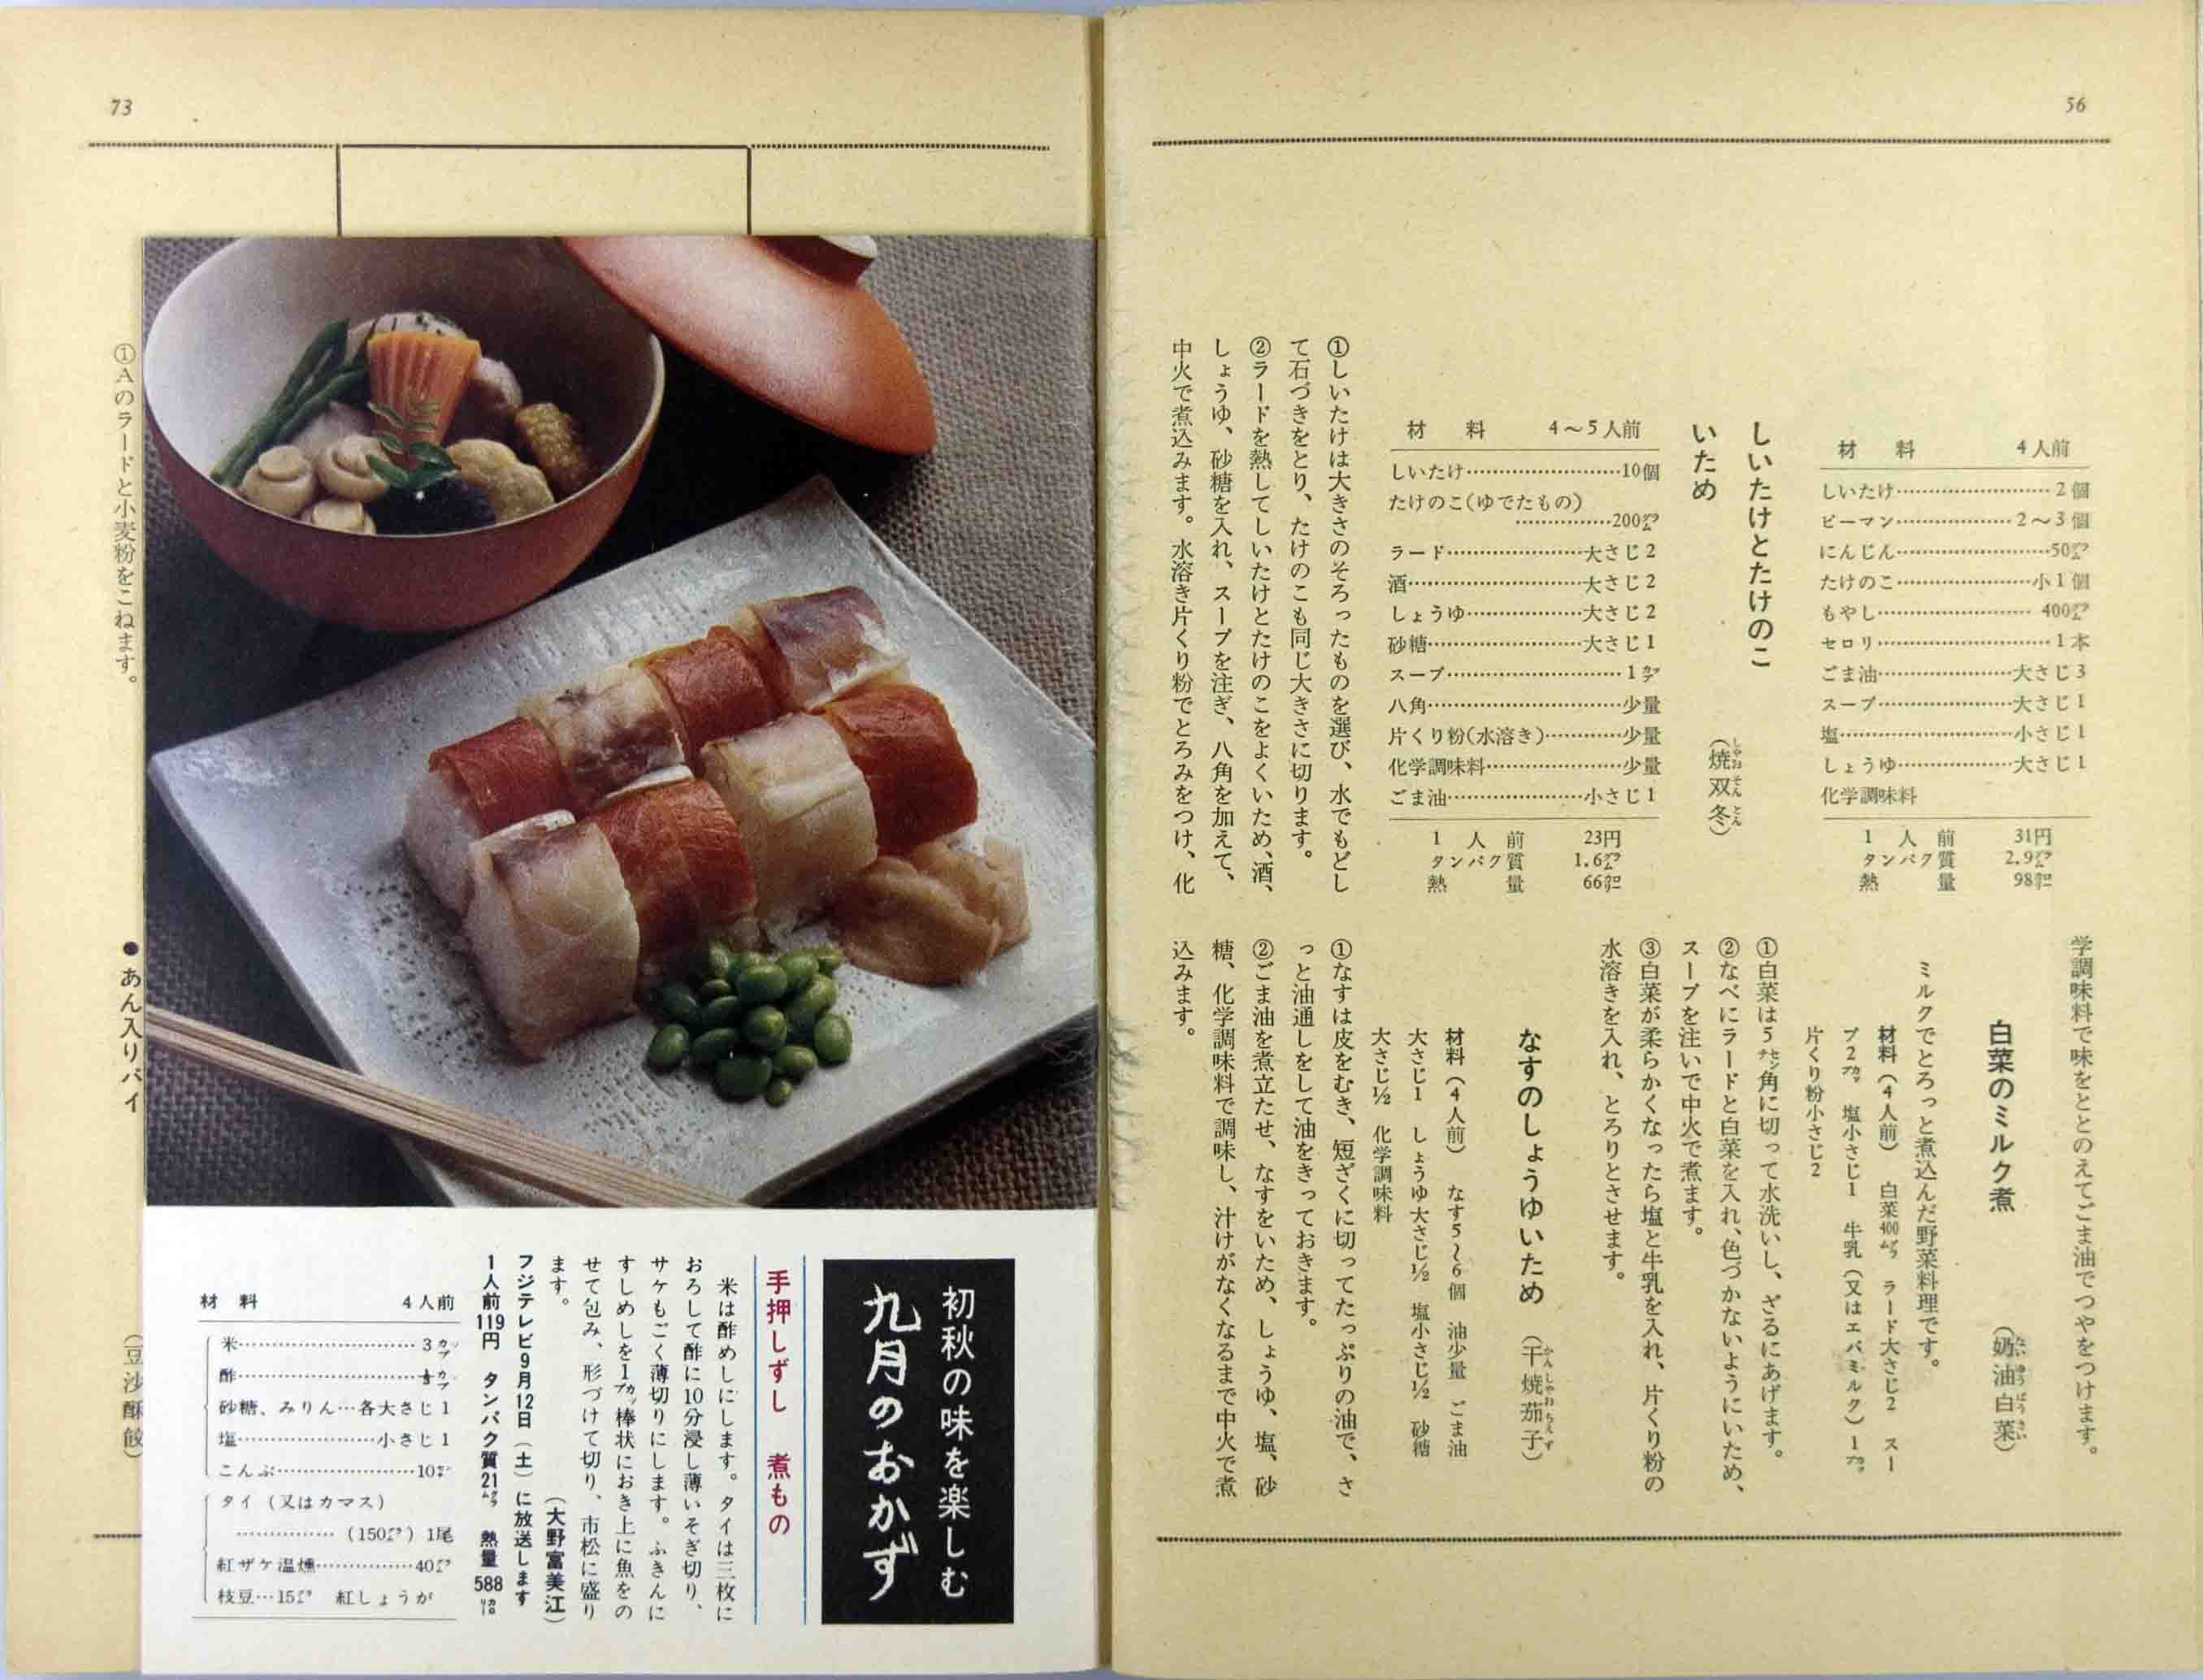 56
材料 4人前
しいたけ……2個
ピーマン……2〜3個
にんじん……50㌘
たけのこ……小1個
もやし……400㌘
セロリ……1本
ごま油……大さじ3
スープ……大さじ1
塩……小さじ1
しょうゆ……大さじ1
化学調味料
1人前 31円
タンパク質 2.9㌘
熱量 98㌍
しいたけとたけのこ
いため
(焼双冬)
しゃおそんとん
材料 4〜5人前
しいたけ……10個
たけのこ(ゆでたもの)
……200㌘
ラード……大さじ2
酒……大さじ2
しょうゆ……大さじ2
砂糖……大さじ1
スープ……1㌍
八角……少量
片くり粉(水溶き)……少量
化学調味料……少量
ごま油……小さじ1
1人前 23円
タンパク質 1.6㌘
熱量 66㌍
①しいたけは大きさのそろったものを選び、水でもどし
て石づきをとり、たけのこも同じ大きさに切ります。
②ラードを熱してしいたけとたけのこをよくいため、酒、
しょうゆ、砂糖を入れ、スープを注ぎ、八角を加えて、
中火で煮込みます。水溶き片くり粉でとろみをつけ、化
学調味料で味をととのえてごま油でつやをつけます。
白菜のミルク煮
(奶油白菜)
ミルクでとろっと煮込んだ野菜料理です。
材料(4人前) 白菜400㌘ ラード大さじ2 スー
プ2カップ 塩小さじ1 牛乳(又はエバミルク)1カップ
片くり粉小さじ2
①白菜は5㌢角に切って水洗いし、ざるにあげます。
②なべにラードと白菜を入れ、色づかないようにいため、
スープを注いで中火で煮ます。
③白菜が柔らかくなったら塩と牛乳を入れ、片くり粉の
水溶きを入れ、とろりとさせます。
なすのしょうゆいため
(干焼茄子)
かんしゃおちえず
材料(4人前) なす5〜6個 油少量 ごま油
大さじ1 しょうゆ大さじ½ 塩小さじ½ 砂糖
大さじ½ 化学調味料
①なすは皮をむき、短ざくに切ってたっぷりの油で、さ
っと油通しをして油をきっておきます。
②ごま油を煮立たせ、なすをいため、しょうゆ、塩、砂
糖、化学調味料で調味し、汁けがなくなるまで中火で煮
込みます。
73
初秋の味を楽しむ
九月のおかず
手押しずし 煮もの
米は酢めしにします。タイは三枚に
おろして酢に10分浸し薄いそぎ切り、
サケもごく薄切りにします。ふきんに
すしめしを1カップ棒状におき上に魚をの
せて包み、形づけて切り、市松に盛り
ます。
(大野富美江)
フジテレビ9月12日(土)に放送します
1人前119円 タンパク質21㌘ 熱量588カロリー
材料 4人前
米……3カップ
酢……⅓カップ
砂糖、みりん…各大さじ1
塩……小さじ1
こんぶ……10㌘
タイ(又はカマス)
……(150㌘)1尾
紅ザケ温燻……40㌘
枝豆…15㌘ 紅しょうが
①Aのラードと小麦粉をこねます。
●あん入りパイ
(豆沙酥餃)